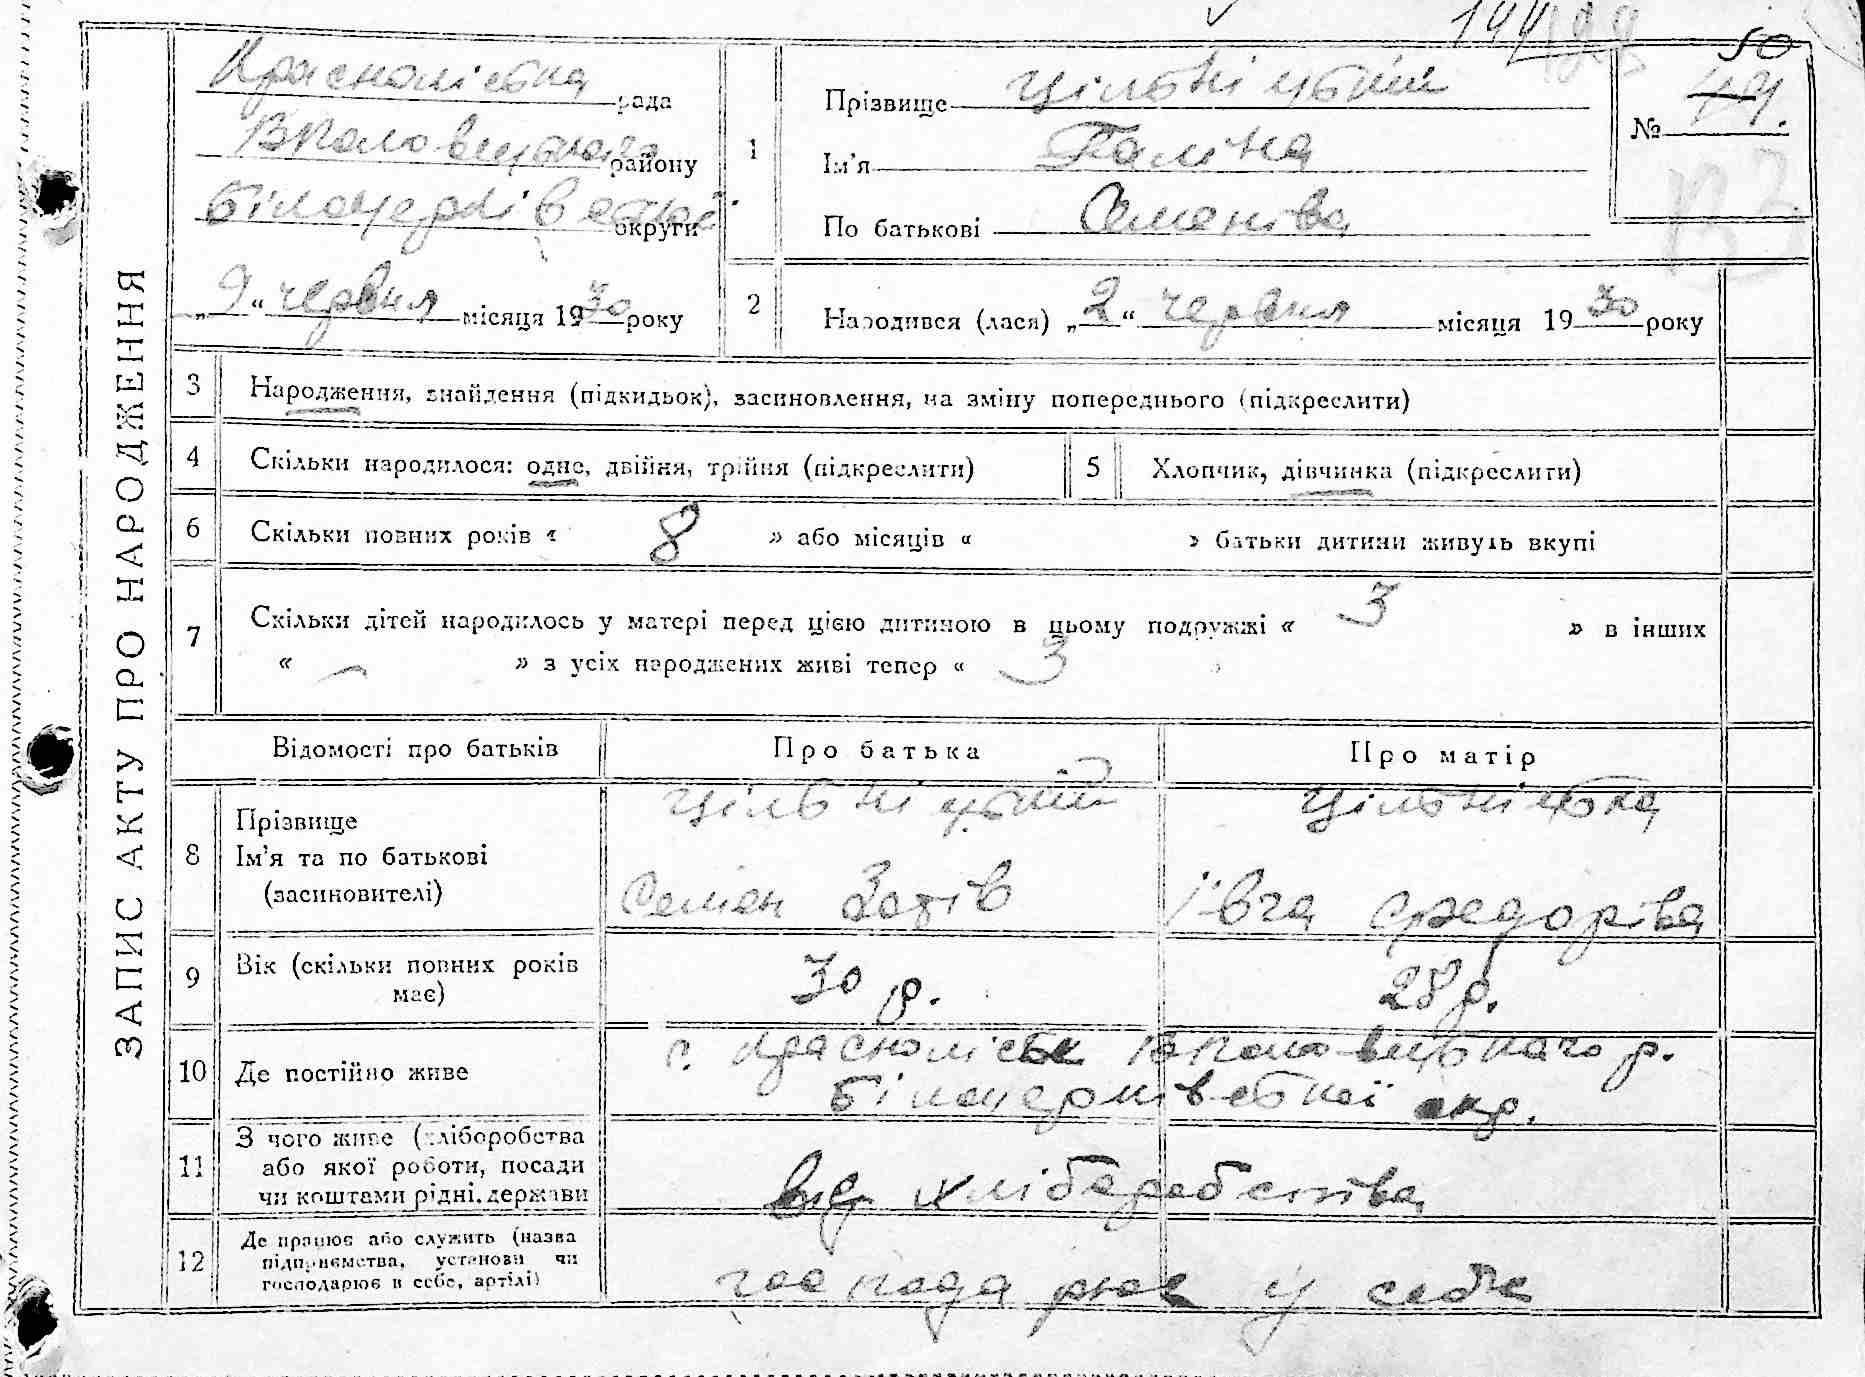 ЗАПИС АКТУ ПРО НАРОДЖЕННЯ
50
№ 44.
Краснолíська рада
району
Білоцерківської округи
„9“ червня місяця 1930 року
1
Прізвище Цільніцький
Ім’я Галіна
По батькові Семенівна
2
Народився (лася) „2“ червня місяця 1930 року
3 Народження, знайдення (підкидьок), засиновлення, на зміну попереднього (підкреслити)
4 Скільки народилося: одне, двійня, трійня (підкреслити)
5 Хлопчик, дівчинка (підкреслити)
6 Скільки повних років « 8 » або місяців « » батьки дитини живуть вкупі
7 Скільки дітей народилось у матері перед цією дитиною в цьому подружжі « 3 » в інших
« – » з усіх народжених живі тепер « 3 »
Відомості про батьків
Про батька
Про матір
8 Прізвище
Ім’я та по батькові
(засиновителі)
Цільніцький
Семен
Цільніцька
Івга Федорівна
9 Вік (скільки повних років
має)
30 р.
28 р.
10 Де постійно живе
с. р.
Білоцерківської окр.
11 З чого живе (хліборобства
або якої роботи, посади
чи коштами рідні, держави
від хліборобства
12 Де працює або служить (назва
підприємства, установи чи
господарює в себе, артілі)
господарює у себе